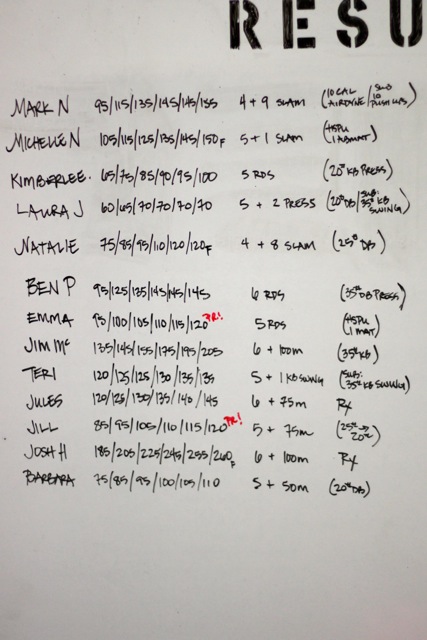 RESU
MARK N 95/115/135/145/145/155 4 + 9 SLAM (10 CAL AIRDYNE/SUB 10 PUSH UPS)
MICHELLE N 105/115/125/135/145/150F 5 + 1 SLAM (HSPU 1 ABMAT)
KIMBERLEE. 65/75/85/90/95/100 5 RDS (20# KB PRESS)
LAURA J 60/65/70/70/70/70 5 + 2 PRESS (20# DB/SUB: 35# KB SWING)
NATALIE 75/85/95/110/120/120F 4 + 8 SLAM (25# DB)
BEN P 95/125/135/145/145/145 6 RDS (35# DB PRESS)
EMMA 95/100/105/110/115/120 PR! 5 RDS (HSPU 1 MAT)
JIM MC 135/145/155/175/195/205 6 + 100m (35# KB)
TERI 120/125/125/130/135/135 5 + 1 KB SWING (SUB: 35# KB SWING)
JULES 120/125/130/135/140/145 6 + 75m RX
JILL 85/95/105/110/115/120 PR! 5 + 75m (25# → 20#)
JOSH H 185/205/225/245/255/260F 6 + 100m RX
BARBARA 75/85/95/100/105/110 5 + 50m (20# DB)